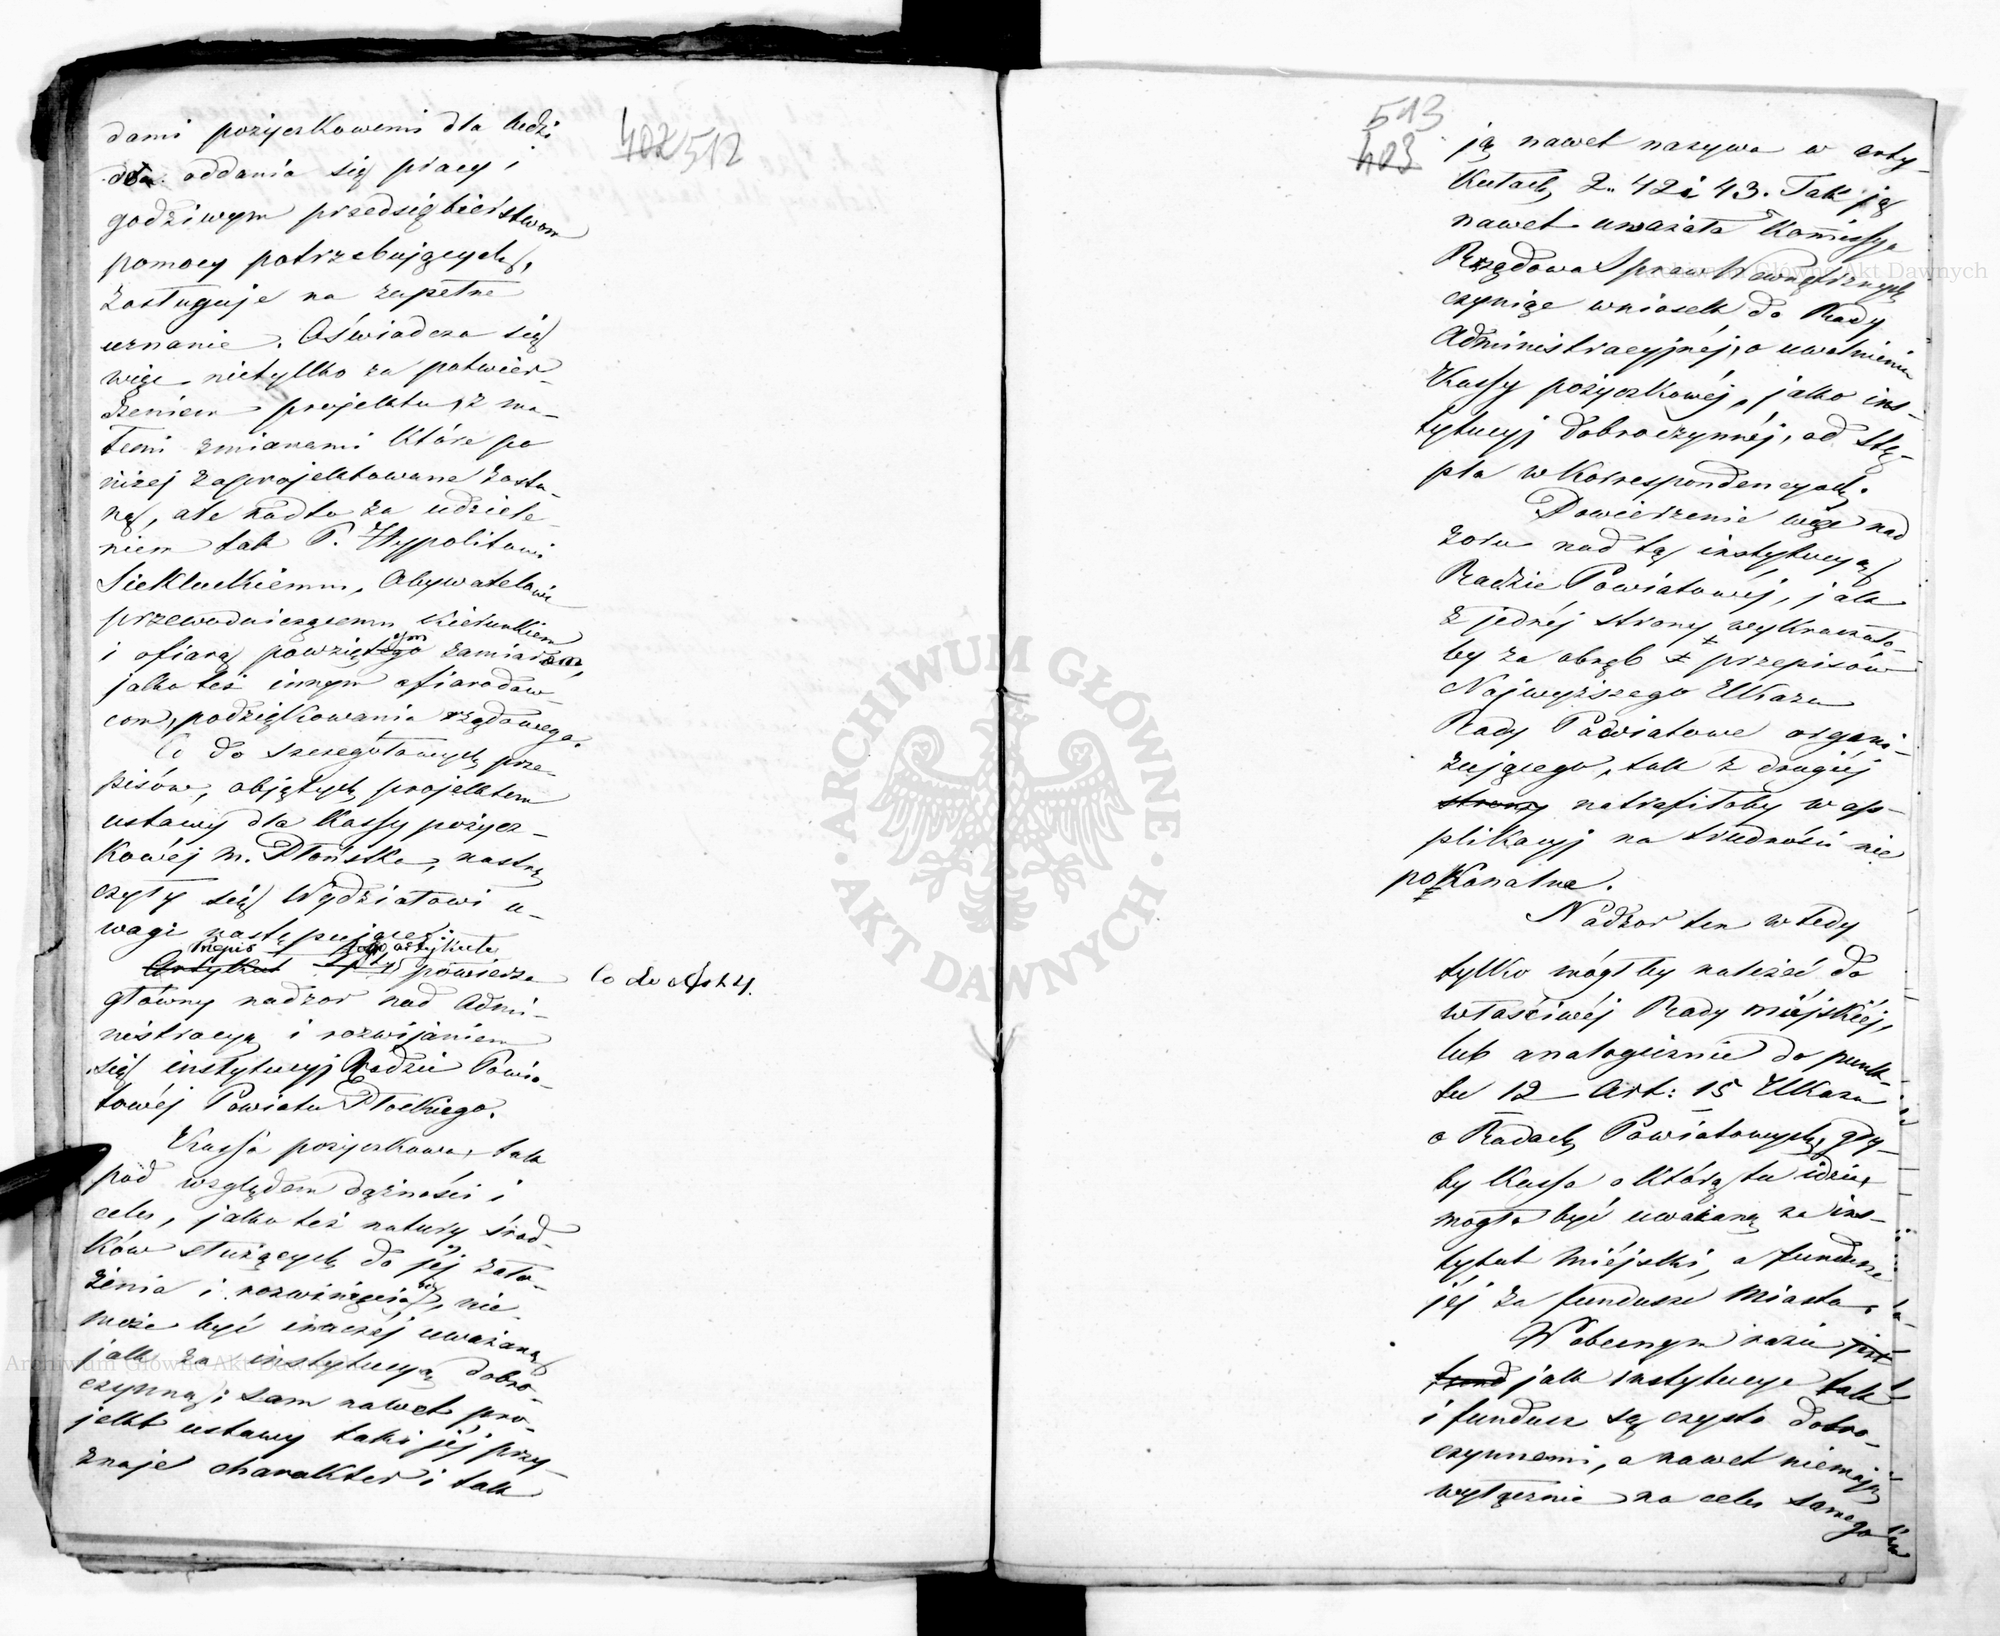 402 512
dami pożyczkowemi dla ludzi
dla oddania się pracy i
godziwym przedsiębierstwom
pomocy potrzebujących,
zasługuje na zupełne
uznanie. Oświadcza się
więc nietylko za potwier-
dzeniem projektu, z ma-
łemi zmianami które po
niżej zaprojektowane zosta-
ną, ale nadto za udziele-
niem tak P. Hypolitowi
Siekluckiemu, Obywatelowi
przewodniczącemu kierunkiem
i ofiarą powziętego zamiarom,
ym
jako też innym ofiarodaw-
com, podziękowania rządowego.
Co do szczegółowych prze-
pisów, objętych projektem
ustawy dla Kassy pożycz-
kowéj m. Płońska, nastrę
czyły się Wydziałowi u-
wagi następujące:
Przepis artykułu
Artykuł powierza
Co do Art 4.
główny nadzor nad Admi-
nistracyą i rozwijaniem
się instytucyj Radzie Powia-
towéj Powiatu Płockiego.
Kassa pożyczkowa, tak
pod względem dążności i
celu, jako też natury środ-
ków służących do jéj zało-
żenia i rozwinięcia, nie-
może być inaczéj uważaną
jak za instytucyą dobro-
czynną; sam nawet pro-
jekt ustawy taki jéj przy-
znaje charakter i tak
513
403
ją nawet nazywa w arty-
kułach 2. 42 i 43. Tak ją
nawet uważała Kommissya
Rządowa Spraw Wewnętrznych
czyniąc wniosek do Rady
Administracyjnéj, o uwolnieniu
Kassy pożyczkowéj, jako ins-
tytucyj dobroczynnéj, od stę-
pla w korrespondencyach.
Powierzenie więc nad
zoru nad tą instytucyą
Radzie Powiatowéj, jak
z jednéj strony wykraczało-
by za obręb przepisów
Najwyższego Ukazu
Rady Powiatowe organi-
zującego, tak z drugiéj
strony natrafiłoby w ap-
plikacyj na trudności nie
pokonalne.
Nadzor ten wtedy
tylko mógłby należeć do
właściwéj Rady miéjskiéj,
lub analogicznie do punk-
tu 12 Art: 15 Ukazu
o Radach Powiatowych, gdy-
by Kassa o którą tu idzie,
mogła być uważaną za ins-
tytut miéjski, a fundusze
jéj za fundusze miasta.
W obecnym razie jest
fund jak instytucye tak
i fundusz są czysto dobro-
czynnemi, a nawet niemają
wyłącznie na celu samego
Archiwum Główne Akt Dawnych
Archiwum Główne Akt Dawnych
ARCHIWUM GŁÓWNE • AKT DAWNYCH •